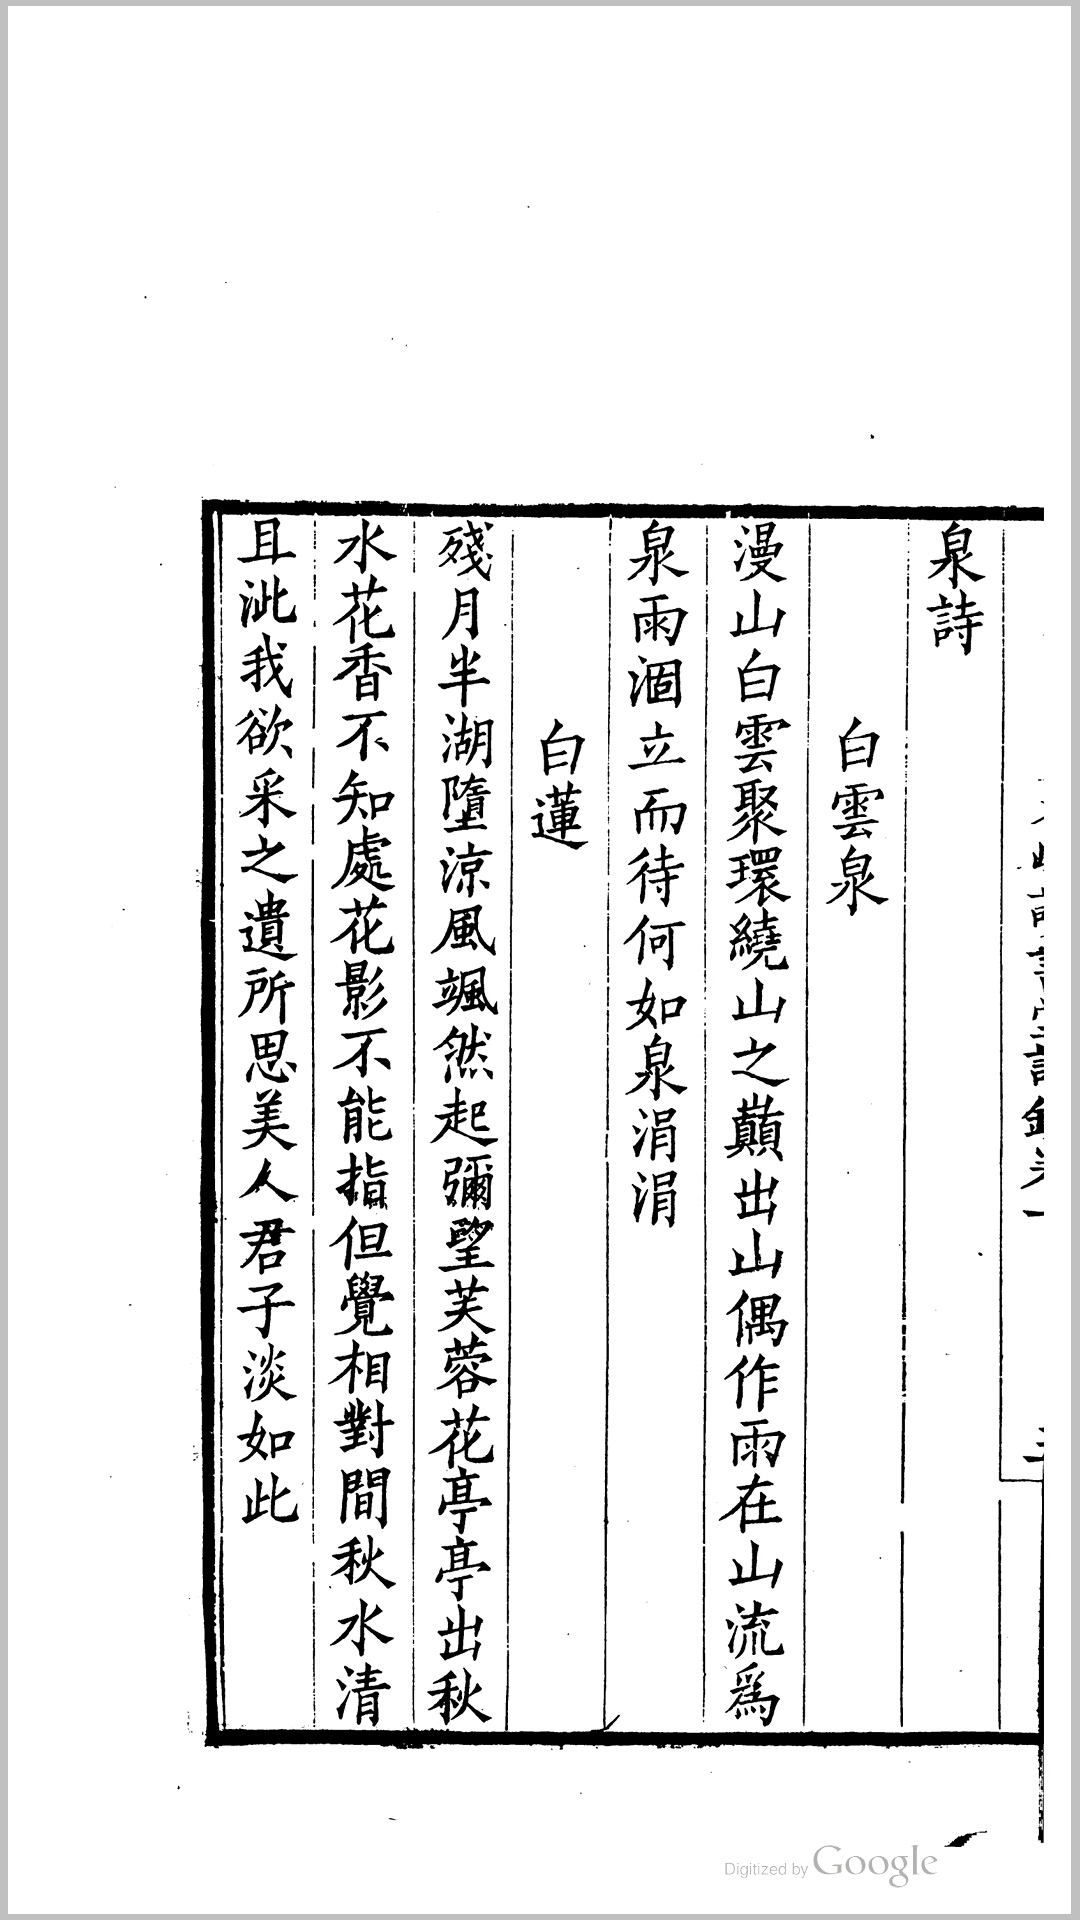 泉詩
白雲泉
漫山白雲聚環繞山之巔出山偶作雨在山流爲
泉雨涸立而待何如泉涓涓
白蓮
殘月半湖墮涼風颯然起彌望芙蓉花亭亭出秋
水花香不知處花影不能指但覺相對間秋水清
且泚我欲采之遺所思美人君子淡如此
Digitized by Google